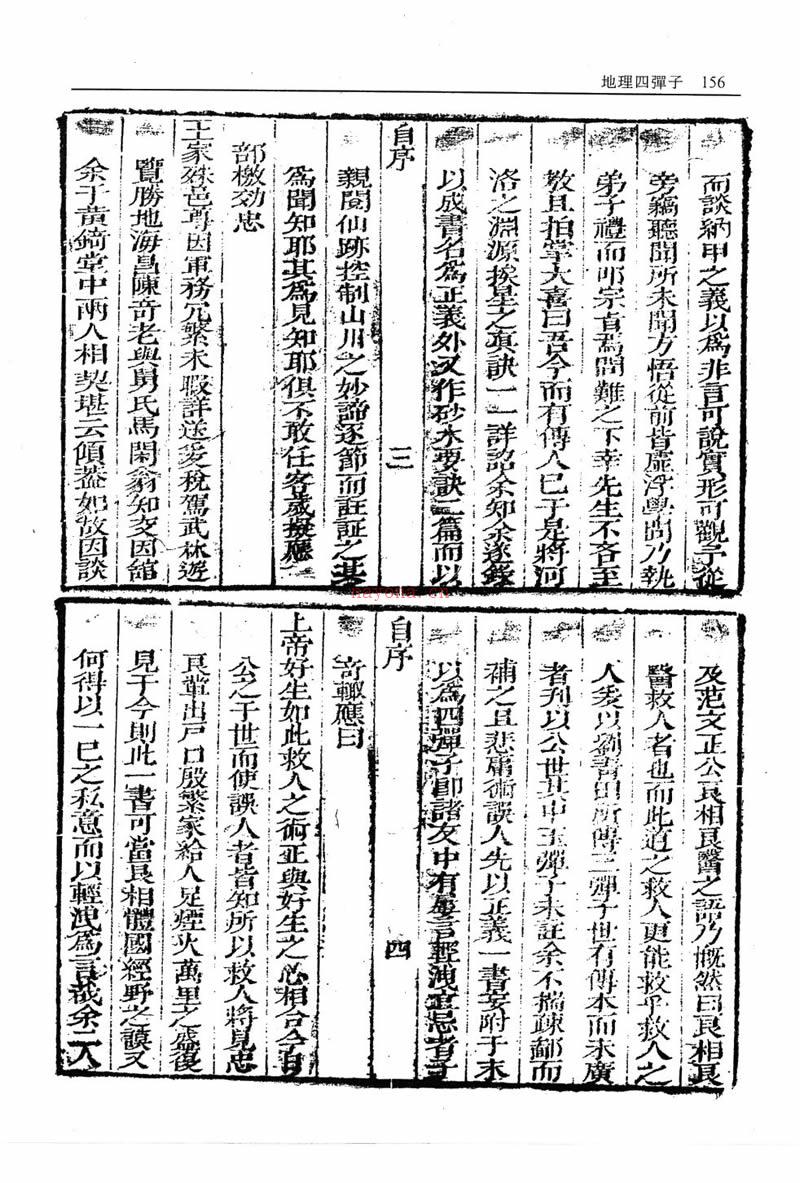 地理四彈子 156
而談納甲之義以爲非言可說實形可觀予從
旁竊聽聞所未聞方悟從前皆虛浮學問乃執
弟子禮而叩宗旨焉問難之下幸先生不吝至
敎且拍掌大喜曰吾今而有傳人已于是將河
洛之淵源挨星之眞訣一一詳認余知余遂錄
以成書名爲正義外又作砂水要訣二篇而以
自序
三
親閱仙跡控制山川之妙諦逐節而註証之其
爲聞知耶其爲見知耶俱不敢任客歲擬應
部檄効忠
王家殊邑尊因軍務冗繁未暇詳送爰稅駕武林遊
覽勝地海昌陳竒老與舅氏馬閑翁知交因館
余于黃錡堂中兩人相契堪云傾蓋如故因談
及范文正公良相良醫之語乃慨然曰良相良
醫救人者也而此道之救人更能救乎救人之
人爰以劉書田所傳三彈子世有傳本而未廣
者刋以公世其中玉彈子未註余不揣疎鄙而
補之且悲庸術誤人先以正義一書妄附于末
以爲四彈子節諸友中有 言輕洩宜忌者
自序
四
竒輙應曰
上帝好生如此救人之術正與好生之心相合今
公之于世而使誤人者皆知所以救人將見忠
良輩出戸口殷繁家給人足煙火萬里之盛復
見于今則此一書可當良相體國經野之謨又
何得以一已之私意而以輕洩爲言哉余二人
nayona.cn